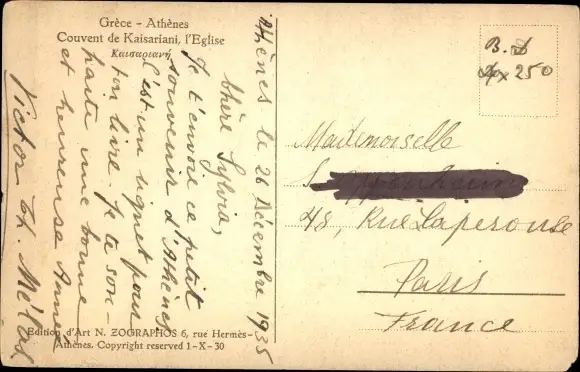 Grèce - Athènes
Couvent de Kaisariani, l'Eglise
Καισαριανή
Athènes le 26 Décembre 1935
Chère Sylvia,
Je t'envoie ce petit
souvenir d'Athènes
C'est un signet pour
ton livre. Je te sou-
haite une bonne
et heureuse Année
Victor Th.
Edition d'Art N. ZOGRAPHOS 6, rue Hermès-
Athènes. Copyright reserved 1-X-30
Mademoiselle
48, Rue Laperouse
Paris
France